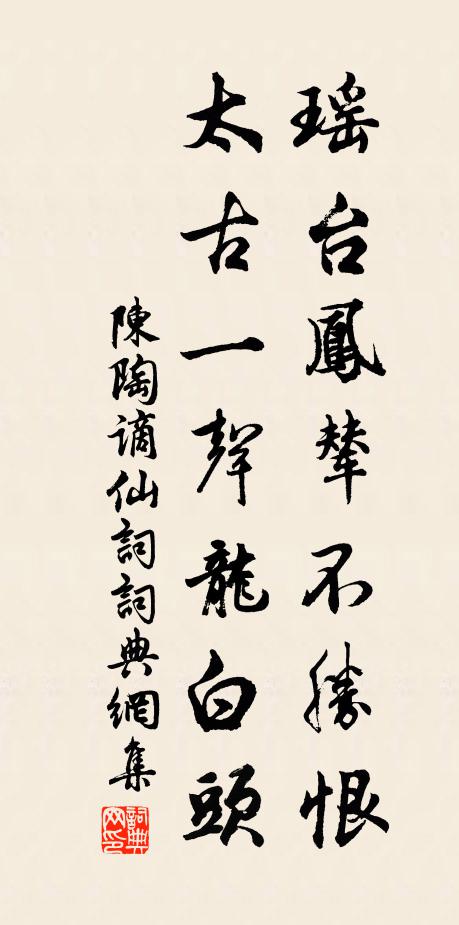 瑶台鳳輦不勝恨
太古一聲龍白頭
陳陶謫仙詞詞典網集
詞典
网印